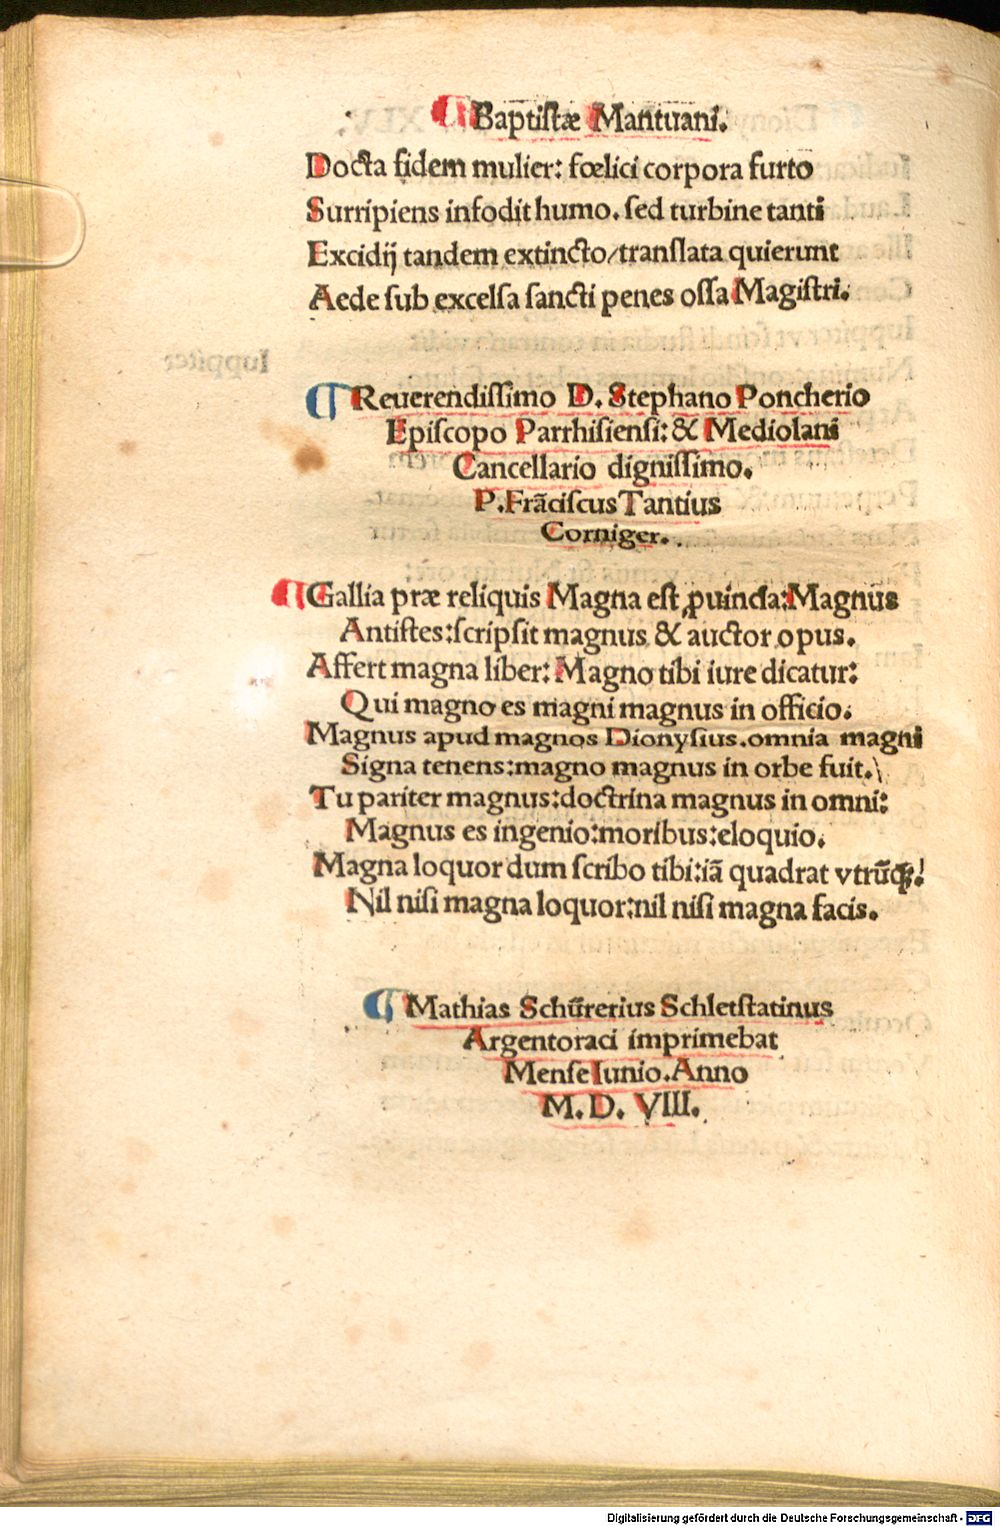 ¶ Baptistæ Mantuani.
Docta fidem mulier: fœlici corpora furto
Surripiens infodit humo. ſed turbine tanti
Excidij tandem extincto/tranſlata quierunt
Aede ſub excelſa ſancti penes oſſa Magiſtri.
¶ Reuerendiſſimo D. Stephano Poncherio
Epiſcopo Parrhiſienſi: & Mediolani
Cancellario digniſſimo.
P. Frãciſcus Tantius
Corniger.
¶ Gallia præ reliquis Magna eſt ꝓuincia: Magnus
Antiſtes: ſcripſit magnus & auctor opus.
Affert magna liber: Magno tibi iure dicatur:
Qui magno es magni magnus in officio.
Magnus apud magnos Dionyſius. omnia magni
Signa tenens: magno magnus in orbe fuit.
Tu pariter magnus: doctrina magnus in omni:
Magnus es ingenio: moribus: eloquio.
Magna loquor dum ſcribo tibi: iã quadrat vtrũqꝫ!
Nil niſi magna loquor: nil niſi magna facis.
¶ Mathias Schũrerius Schletſtatinus
Argentoraci imprimebat
Menſe Iunio. Anno
M. D. VIII.
Iuppiter
Digitalisierung gefördert durch die Deutsche Forschungsgemeinschaft - DFG